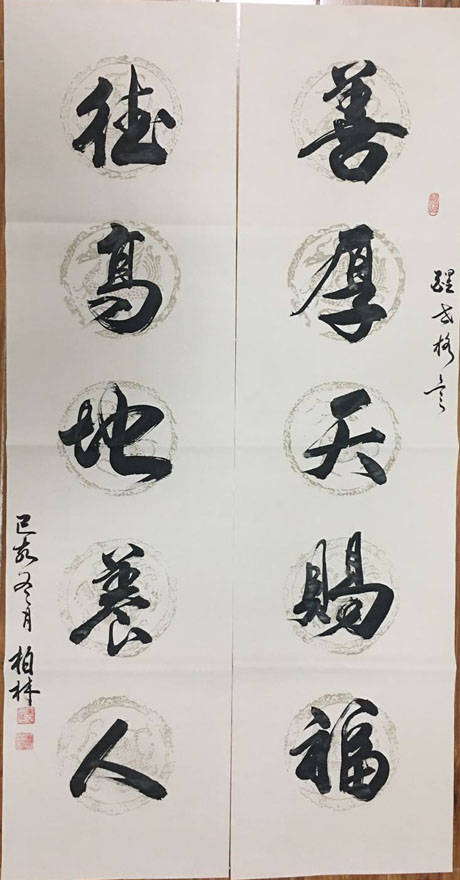 醒世格言
善厚天賜福
德高地養人
己亥冬月柏林